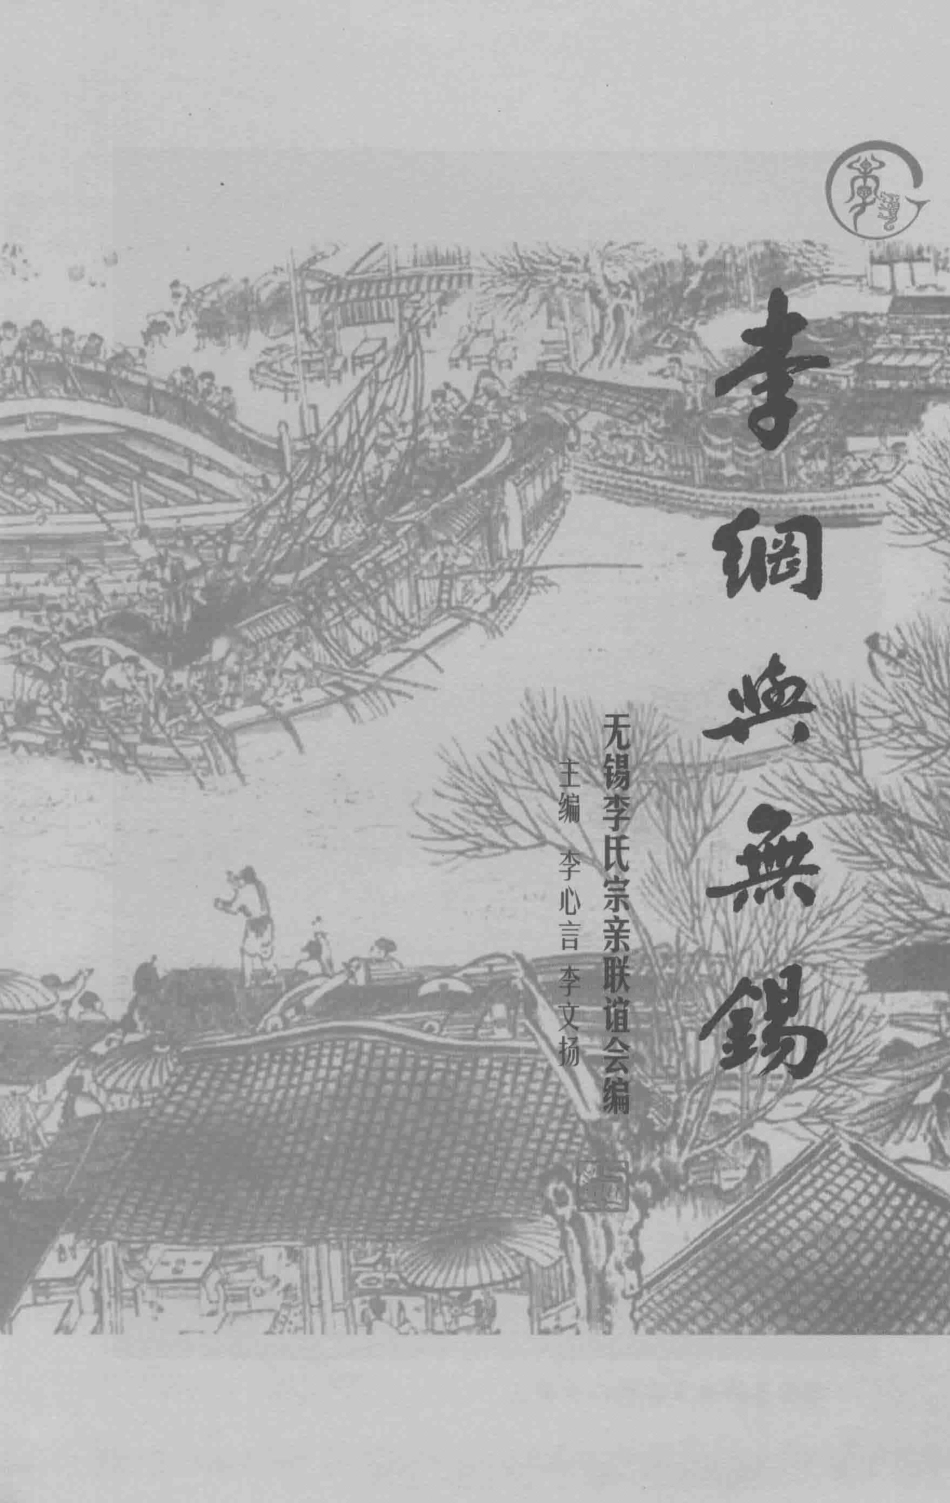 李綱與無錫
无锡李氏宗亲联谊会编
主编 李心言 李文扬